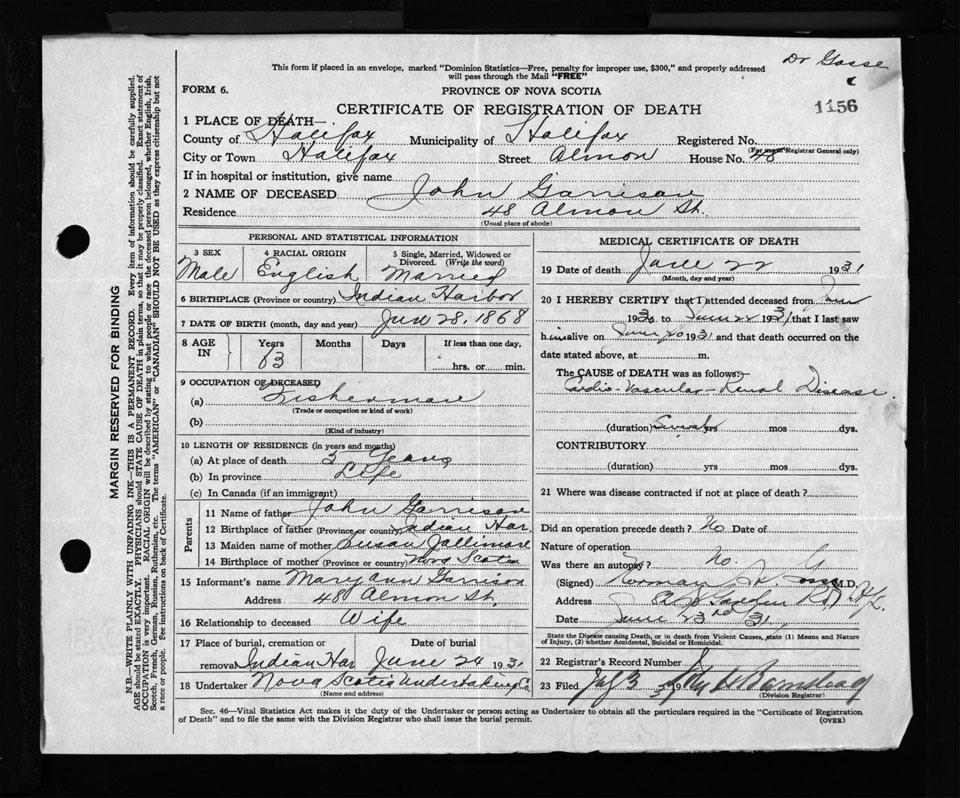 Dr Gosse
1156
This form if placed in an envelope, marked "Dominion Statistics—Free, penalty for improper use, $300," and properly addressed
will pass through the Mail "FREE"
FORM 6.
PROVINCE OF NOVA SCOTIA
CERTIFICATE OF REGISTRATION OF DEATH
1 PLACE OF DEATH—
County of Halifax Municipality of Halifax Registered No.
(For use of Registrar General only)
City or Town Halifax Street Almon House No. 48
If in hospital or institution, give name
2 NAME OF DECEASED John Garrison
Residence 48 Almon St.
(Usual place of abode)
PERSONAL AND STATISTICAL INFORMATION
3 SEX 4 RACIAL ORIGIN 5 Single, Married, Widowed or
Divorced. (Write the word)
Male English Married
6 BIRTHPLACE (Province or country) Indian Harbor
7 DATE OF BIRTH (month, day and year) 28, 1868
8 AGE IN Years Months Days If less than one day,
63 hrs. or min.
9 OCCUPATION OF DECEASED
(a) Fisherman
(Trade or occupation or kind of work)
(b)
(Kind of industry)
10 LENGTH OF RESIDENCE (in years and months)
(a) At place of death 5 Years
(b) In province Life
(c) In Canada (if an immigrant)
Parents
11 Name of father John Garrison
12 Birthplace of father (Province or country) Indian Har.
13 Maiden name of mother Susan
14 Birthplace of mother (Province or country) Nova Scotia
15 Informant's name Mary ann Garrison
Address 48 Almon St.
16 Relationship to deceased Wife
17 Place of burial, cremation or Date of burial
removal Indian Har June 24 1931
18 Undertaker Nova Scotia Undertaking Co.
(Name and address)
MEDICAL CERTIFICATE OF DEATH
19 Date of death June 22 1931
(Month, day and year)
20 I HEREBY CERTIFY that I attended deceased from
to June 22 1931 that I last saw
him alive on June 20 1931 and that death occurred on the
date stated above, at m.
The CAUSE OF DEATH was as follows:
Cardio-Vascular-Renal Disease.
(duration) Several yrs mos dys.
CONTRIBUTORY
(duration) yrs mos dys.
21 Where was disease contracted if not at place of death?
Did an operation precede death? No Date of
Nature of operation
Was there an autopsy? No.
(Signed) Norman M.D.
Address
Date June 23rd 31
State the Disease causing Death, or in death from Violent Causes, state (1) Means and Nature
of Injury, (2) whether Accidental, Suicidal or Homicidal.
22 Registrar's Record Number
23 Filed 3 19
(Division Registrar)
Sec. 46—Vital Statistics Act makes it the duty of the Undertaker or person acting as Undertaker to obtain all the particulars required in the "Certificate of Registration
of Death" and to file the same with the Division Registrar who shall issue the burial permit. (OVER)
MARGIN RESERVED FOR BINDING
N.B.—WRITE PLAINLY WITH UNFADING INK—THIS IS A PERMANENT RECORD. Every item of information should be carefully supplied.
AGE should be stated EXACTLY. PHYSICIANS should STATE CAUSE OF DEATH in plain terms, so that it may be properly classified. Exact statement of
OCCUPATION is very important. RACIAL ORIGIN will be described by stating to what people or race the deceased person belonged, whether English, Irish,
Scotch, French, German, Russian, Ruthenian, etc. The terms "AMERICAN" or "CANADIAN" SHOULD NOT BE USED as they express citizenship but not
a race or people. See instructions on back of Certificate.